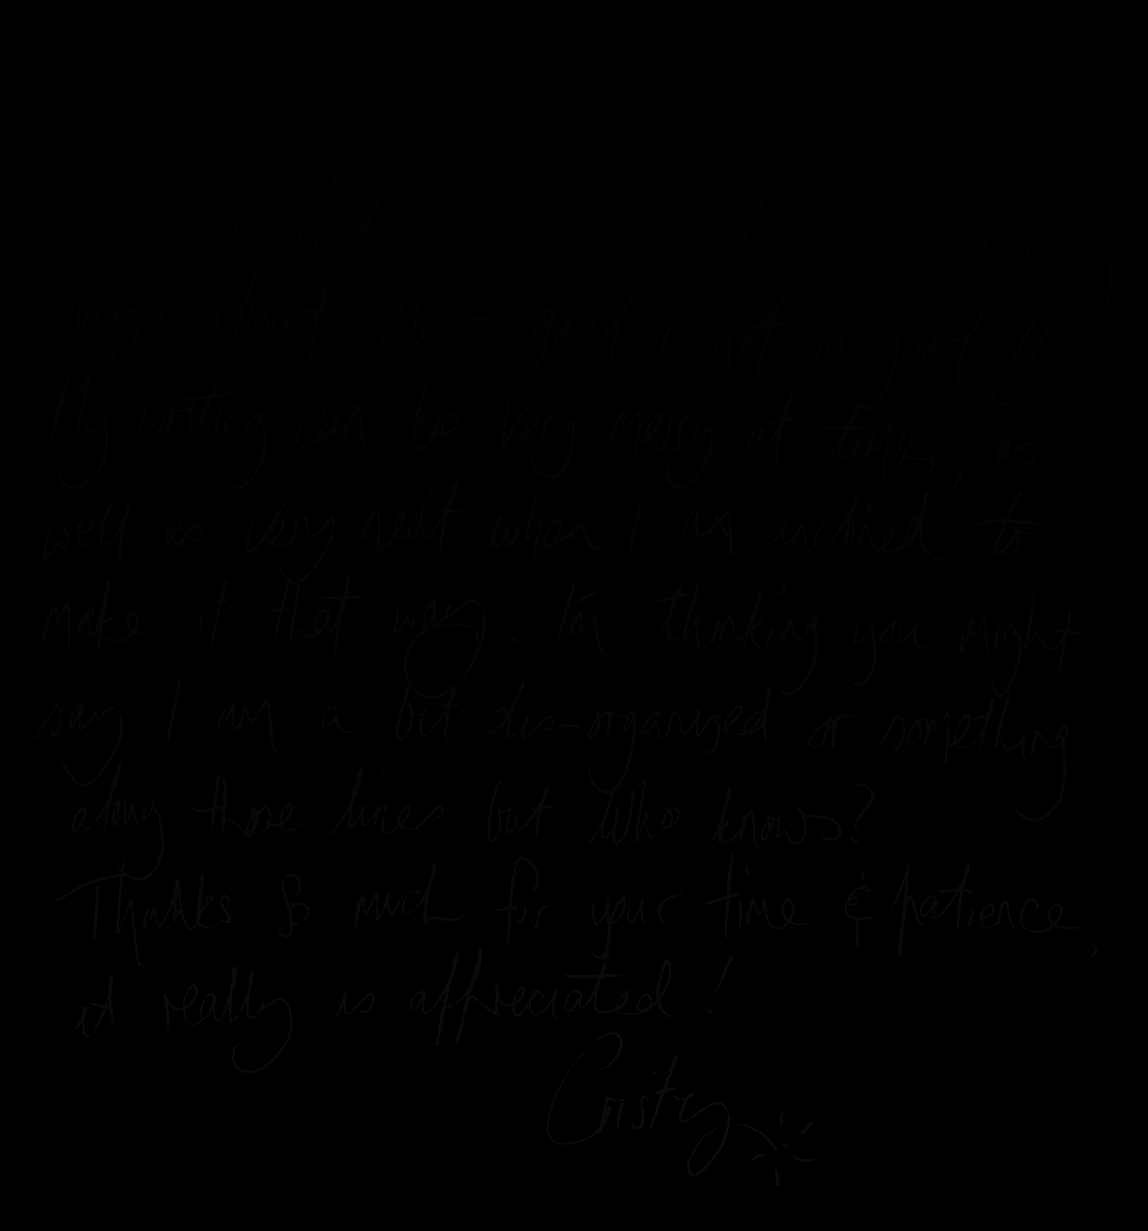 Very interested to learn what my handwriting
says about me - good or not so good!!
My writing can be very messy at times, as
well as very neat when I am inclined to
make it that way. I'm thinking you might
say I am a bit dis-organized or something
along those lines but who knows?
Thanks so much for your time & patience,
it really is appreciated!
Cristy